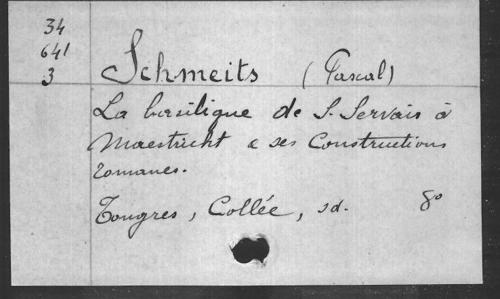 34
641
3
Schmeits (Pascal)
La basilique de S. Servais à
Maestricht & ses Constructions
romanes.
Tongres, Collée, sd. 8°